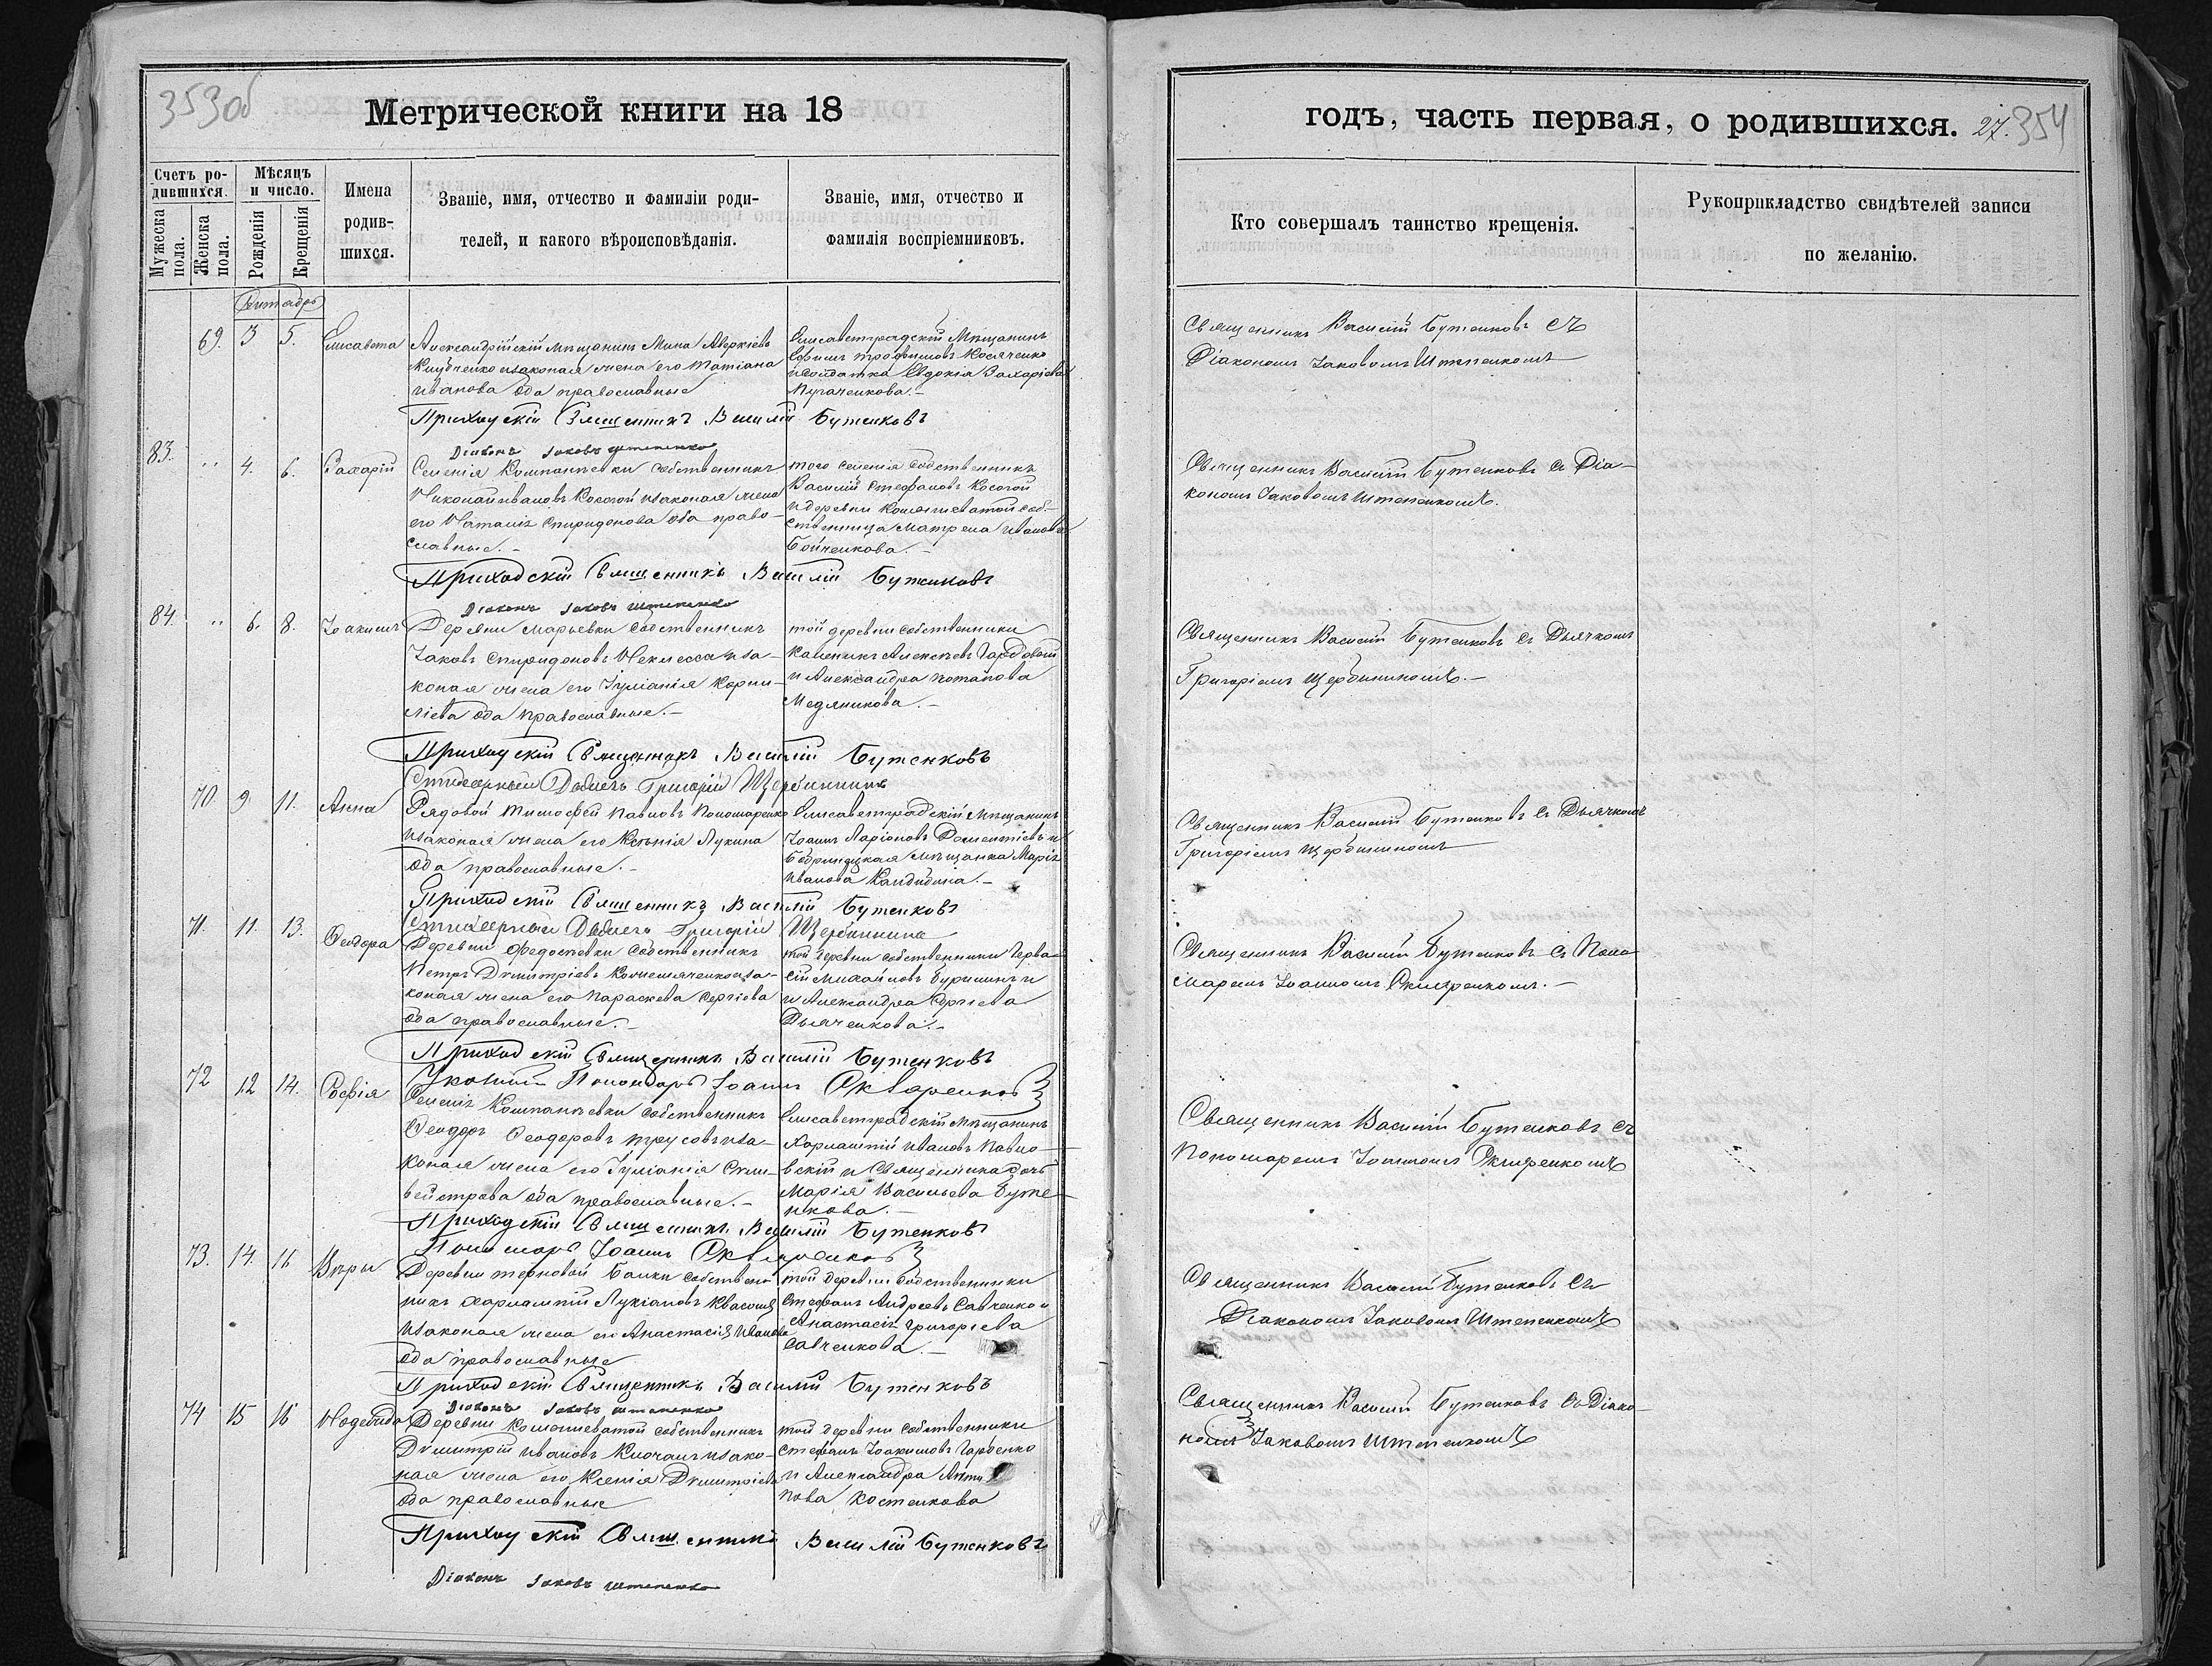 353об
Метрической книги на 18
годъ, часть первая, о родившихся.
27. 354
Счетъ ро-
дившихся.
Мѣсяцъ
и число.
Мужеска
пола.
Женска
пола.
Рожденія
Крещенія
Имена
родив-
шихся.
Званіе, имя, отчество и фамиліи роди-
телей, и какого вѣроисповѣданія.
Званіе, имя, отчество и
фамилія воспріемниковъ.
Кто совершалъ таинство крещенія.
Рукоприкладство свидѣтелей записи
по желанію.
69. 3 5. Елисавета
Александрійскій мѣщанинъ Мина Аверкіевъ
изаконная жена его Татіана
Иванова оба православные
Елисаветградскій Мѣщанинъ
Косяченко
исолдатка Евдокія Захаріева
Пугаченкова.-
Священникъ Василій Бутенковъ съ
Діакономъ Іаковомъ Штепенкомъ
Приходскій Священникъ Василій Бутенковъ
Діаконъ Іаковъ Штепенко
83. " 4. 6. Захарій
Селенія Компанѣевки собственникъ
Николай Ивановъ Косогой изаконная жена
его Наталія Спиридонова оба право-
славные.-
того селенія собственникъ
Василій Стефановъ Косогой
идеревни Комышеватой соб-
ственница Матрена Иванова
Бойченкова.-
Священникъ Василій Бутенковъ съ Діа-
кономъ Іаковомъ Штепенкомъ.
Приходскій Священникъ Василій Бутенковъ
Діаконъ Іаковъ Штепенко
84. " 6. 8. Іоакимъ
Деревни Марьевки собственникъ
Іаковъ Спиридоновъ Неклесса иза-
конная жена его Іуліанія Корни-
ліева оба православные.-
той деревни собственники
Калиникъ Алексѣевъ
и Александра Потапова
Медяникова.-
Священникъ Василій Бутенковъ съ Дьячкомъ
Григоріемъ Щербининомъ.-
Приходскій Священникъ Василій Бутенковъ
Григорій Щербининъ
70. 9. 11. Анна
Рядовой Тимофей Павловъ Пономаренко
изаконная жена его Ксенія Лукина
оба православные.-
Елисаветградскій мѣщанинъ
Іоаннъ Ларіоновъ Дементіевъ и
Бобринецкая мѣщанка Марія
Иванова
Священникъ Василій Бутенковъ съ Дьячкомъ
Григоріемъ Щербининомъ
Приходскій Священникъ Василій Бутенковъ
Григорій Щербининъ
71. 11. 13. Ѳеодора
Деревни Федосѣевки собственникъ
Петръ Димитріевъ иза-
конная жена его Параскева Сергіева
оба православные.-
той деревни собственники Герва-
сій Михайловъ
и Александра Сергіева
Дьяченкова.-
Священникъ Василій Бутенковъ съ Поно-
маремъ Іоанномъ Скляренкомъ.-
Приходскій Священникъ Василій Бутенковъ
Пономарь Іоаннъ
72 12 14. Софія
Селенія Компанѣевки собственникъ
Ѳеодоръ Ѳеодоровъ Трусовъ иза-
конная жена его Іуліанія Силь-
вестрова оба православные.-
Елисаветградскій мѣщанинъ
Харлампій Ивановъ Павло-
вскій и Священника дочь
Марія Васильева Буте-
нкова.-
Священникъ Василій Бутенковъ съ
Пономаремъ Іоанномъ Скляренкомъ
Приходскій Священникъ Василій Бутенковъ
Пономарь Іоаннъ
73. 14. 16 Вѣры
Деревни Терновой Балки собствен-
никъ Харлампій Лукіановъ Квасоля
изаконная жена его Анастасія Иванова
оба православные
той деревни собственники
Стефанъ Андреевъ Савченко и
Анастасія Григорьева
Савченкова.-
Священникъ Василій Бутенковъ съ
Діакономъ Іаковомъ Штепенкомъ
Приходскій Священникъ Василій Бутенковъ
Діаконъ Іаковъ Штепенко
74 15 16 Надежда
Деревни Комышеватой собственникъ
Димитрій Ивановъ Клочанъ изако-
нная жена его Ксенія Димитріева
оба православные
той деревни собственники
Стефанъ Іоакимовъ Гарбенко
и Александра Анти-
пова Костенкова
Священникъ Василій Бутенковъ съ Діако-
номъ Іаковомъ Штепенкомъ
Приходскій Священникъ Василій Бутенковъ
Діаконъ Іаковъ Штепенко